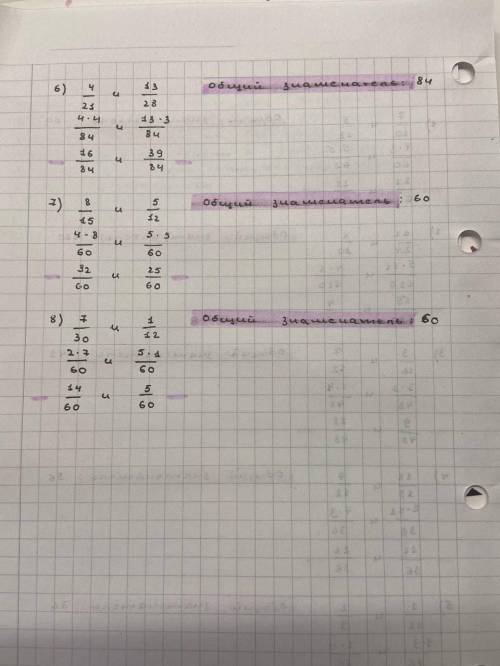 6) 4/21 и 13/28 Общий знаменатель: 84
4·4/84 и 13·3/84
16/84 и 39/84
7) 8/15 и 5/12 Общий знаменатель: 60
4·8/60 и 5·5/60
32/60 и 25/60
8) 7/30 и 1/12 Общий знаменатель: 60
2·7/60 и 5·1/60
14/60 и 5/60